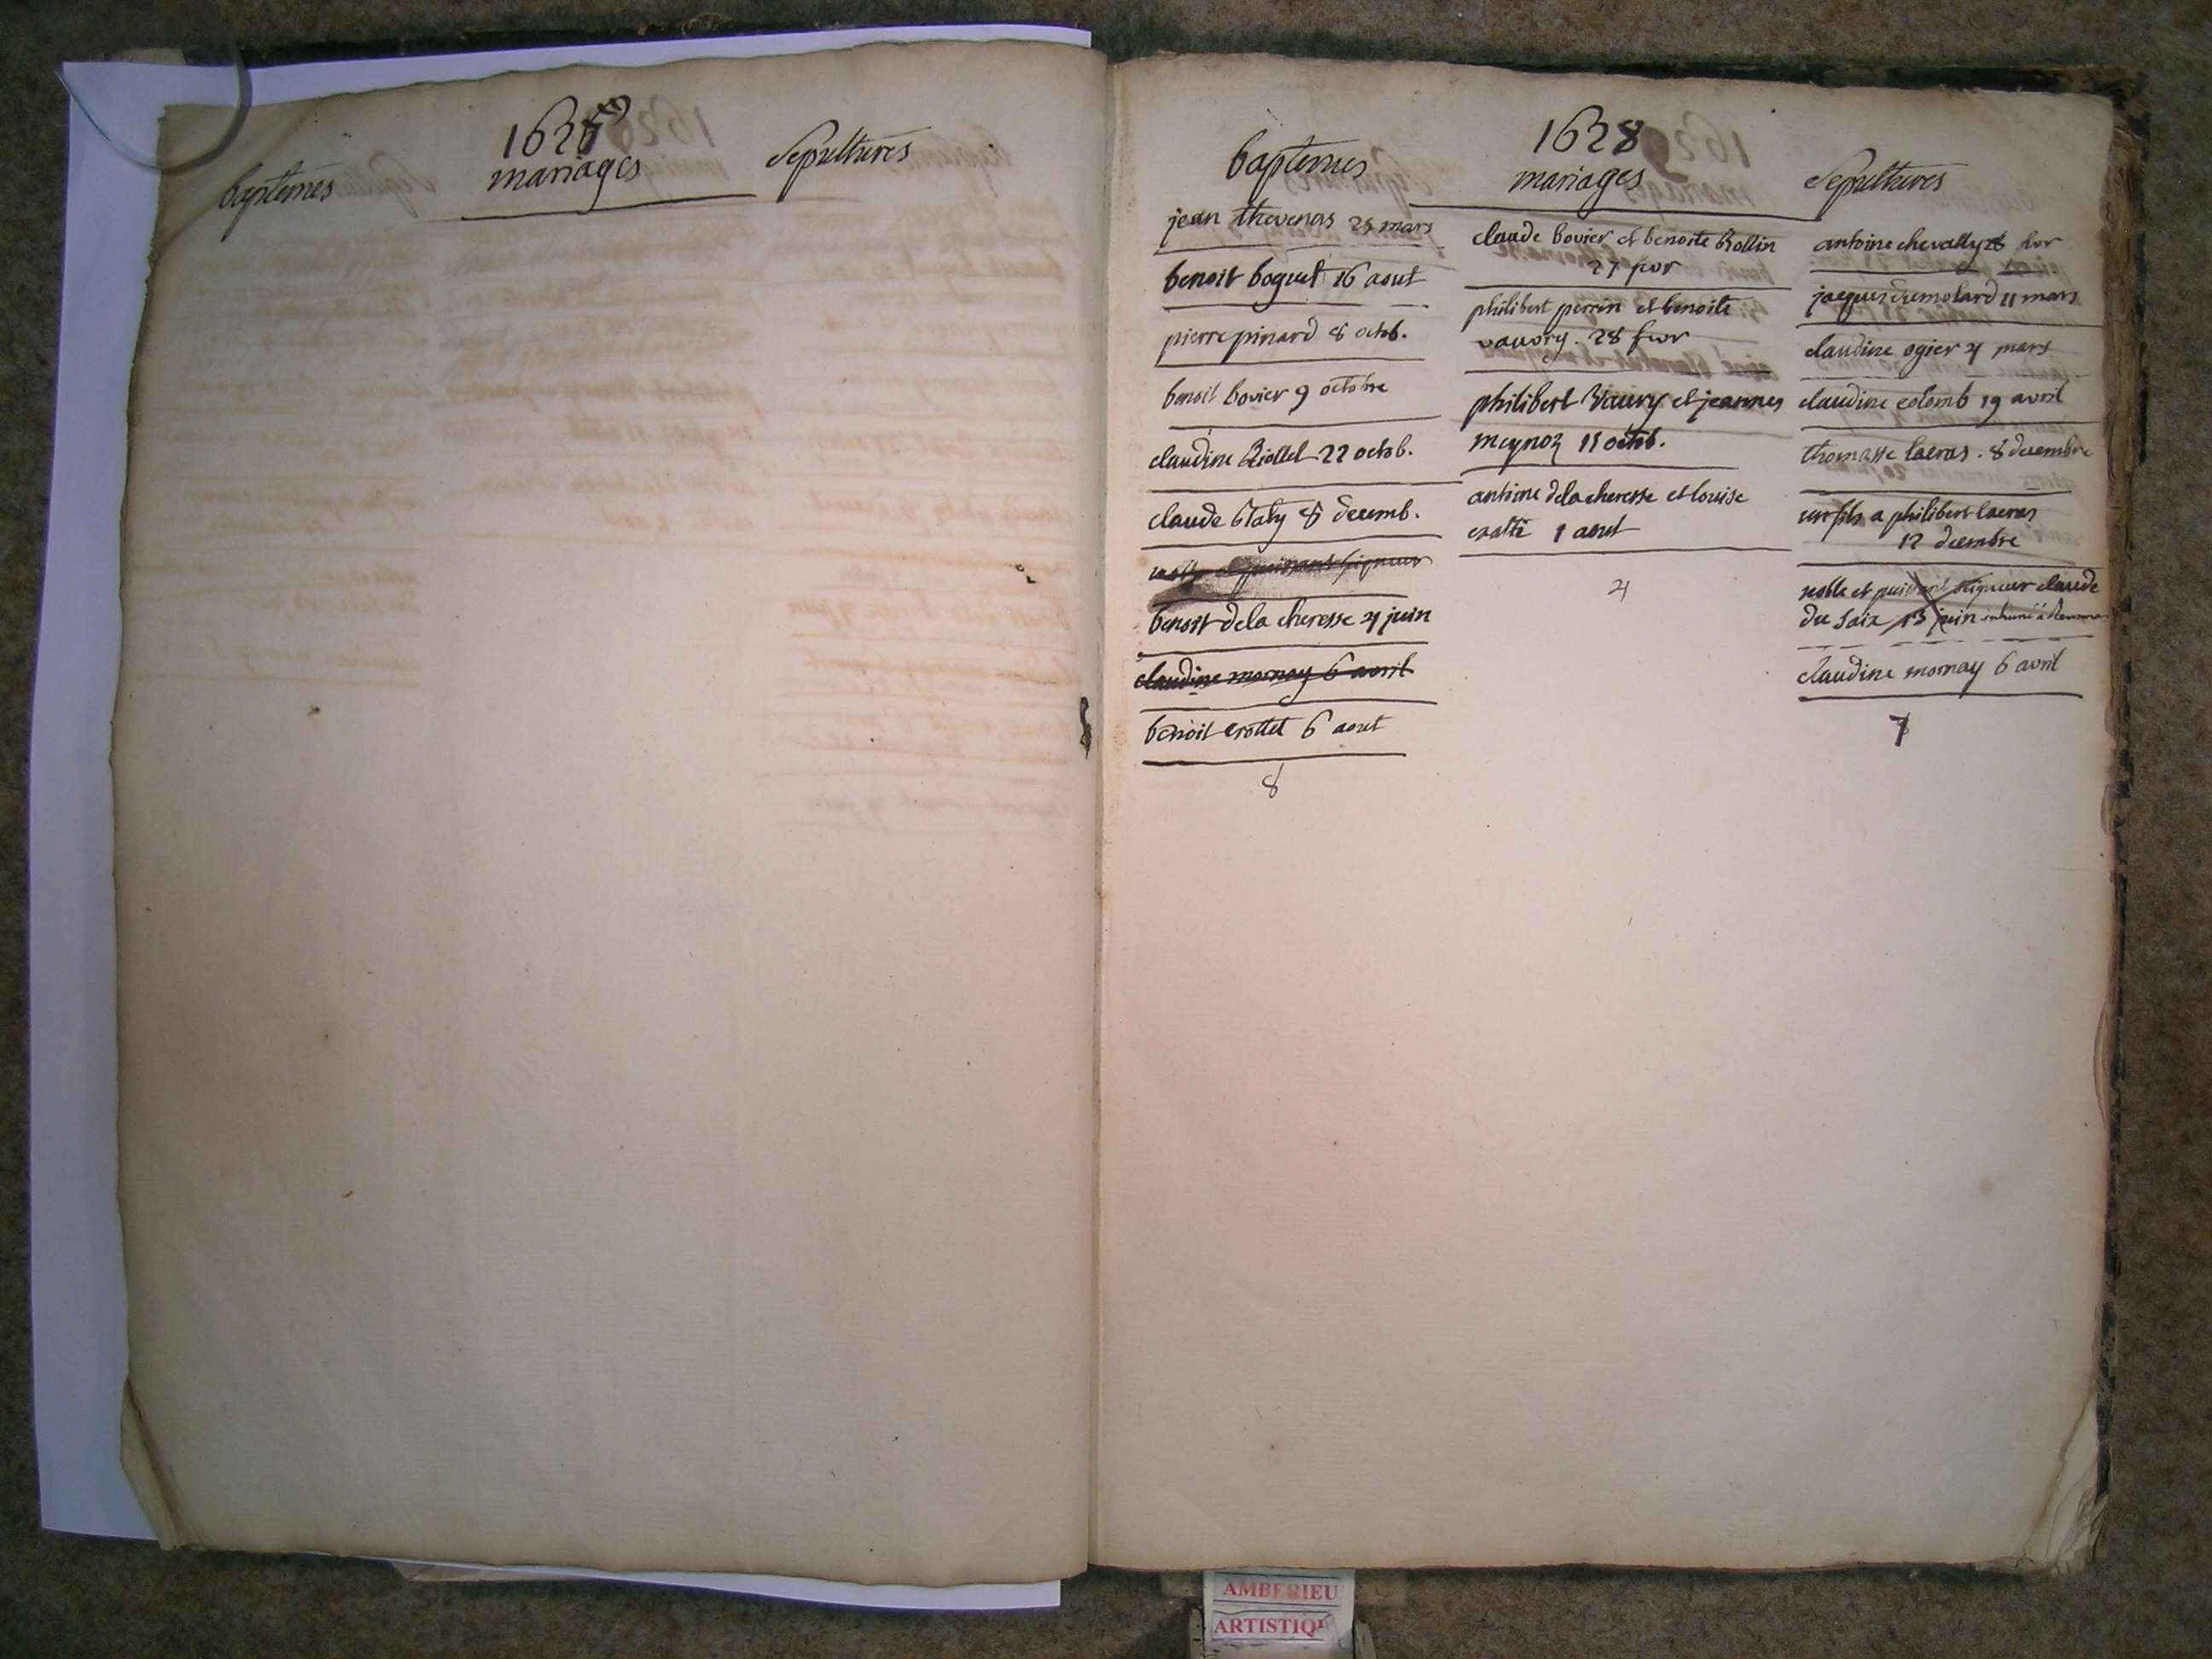 1627
baptemes mariages Sepultures
1628
baptemes mariages Sepultures
jean thevenas 25 mars
benoit boguet 16 aout
pierre pinard 8 octob.
benoit bovier 9 octobre
claudine Riollet 22 octob.
claude Staty 8 decemb.
et puissant seigneur
benoit dela cheresse 4 juin
claudine mornay 6 avril
benoit crottet 6 aout
8
claude bovier et benoite Rollin
27 fvr
philibert perrin et benoite
vauvry. 28 fvr
philibert Vauvry et jeanne
meynoz 15 octob.
antoine dela cheresse et louise
1 aout
4
antoine chevally
jacques dumolard 11 mars
claudine ogier 4 mars
claudine colomb 19 avril
thomasse lacras. 8 decembre
un fils a philibert lacras
12 decembre
noble et puissant seigneur claude
du saix 13 juin inhumé a
claudine mornay 6 avril
7
AMBERIEU
ARTISTIQU